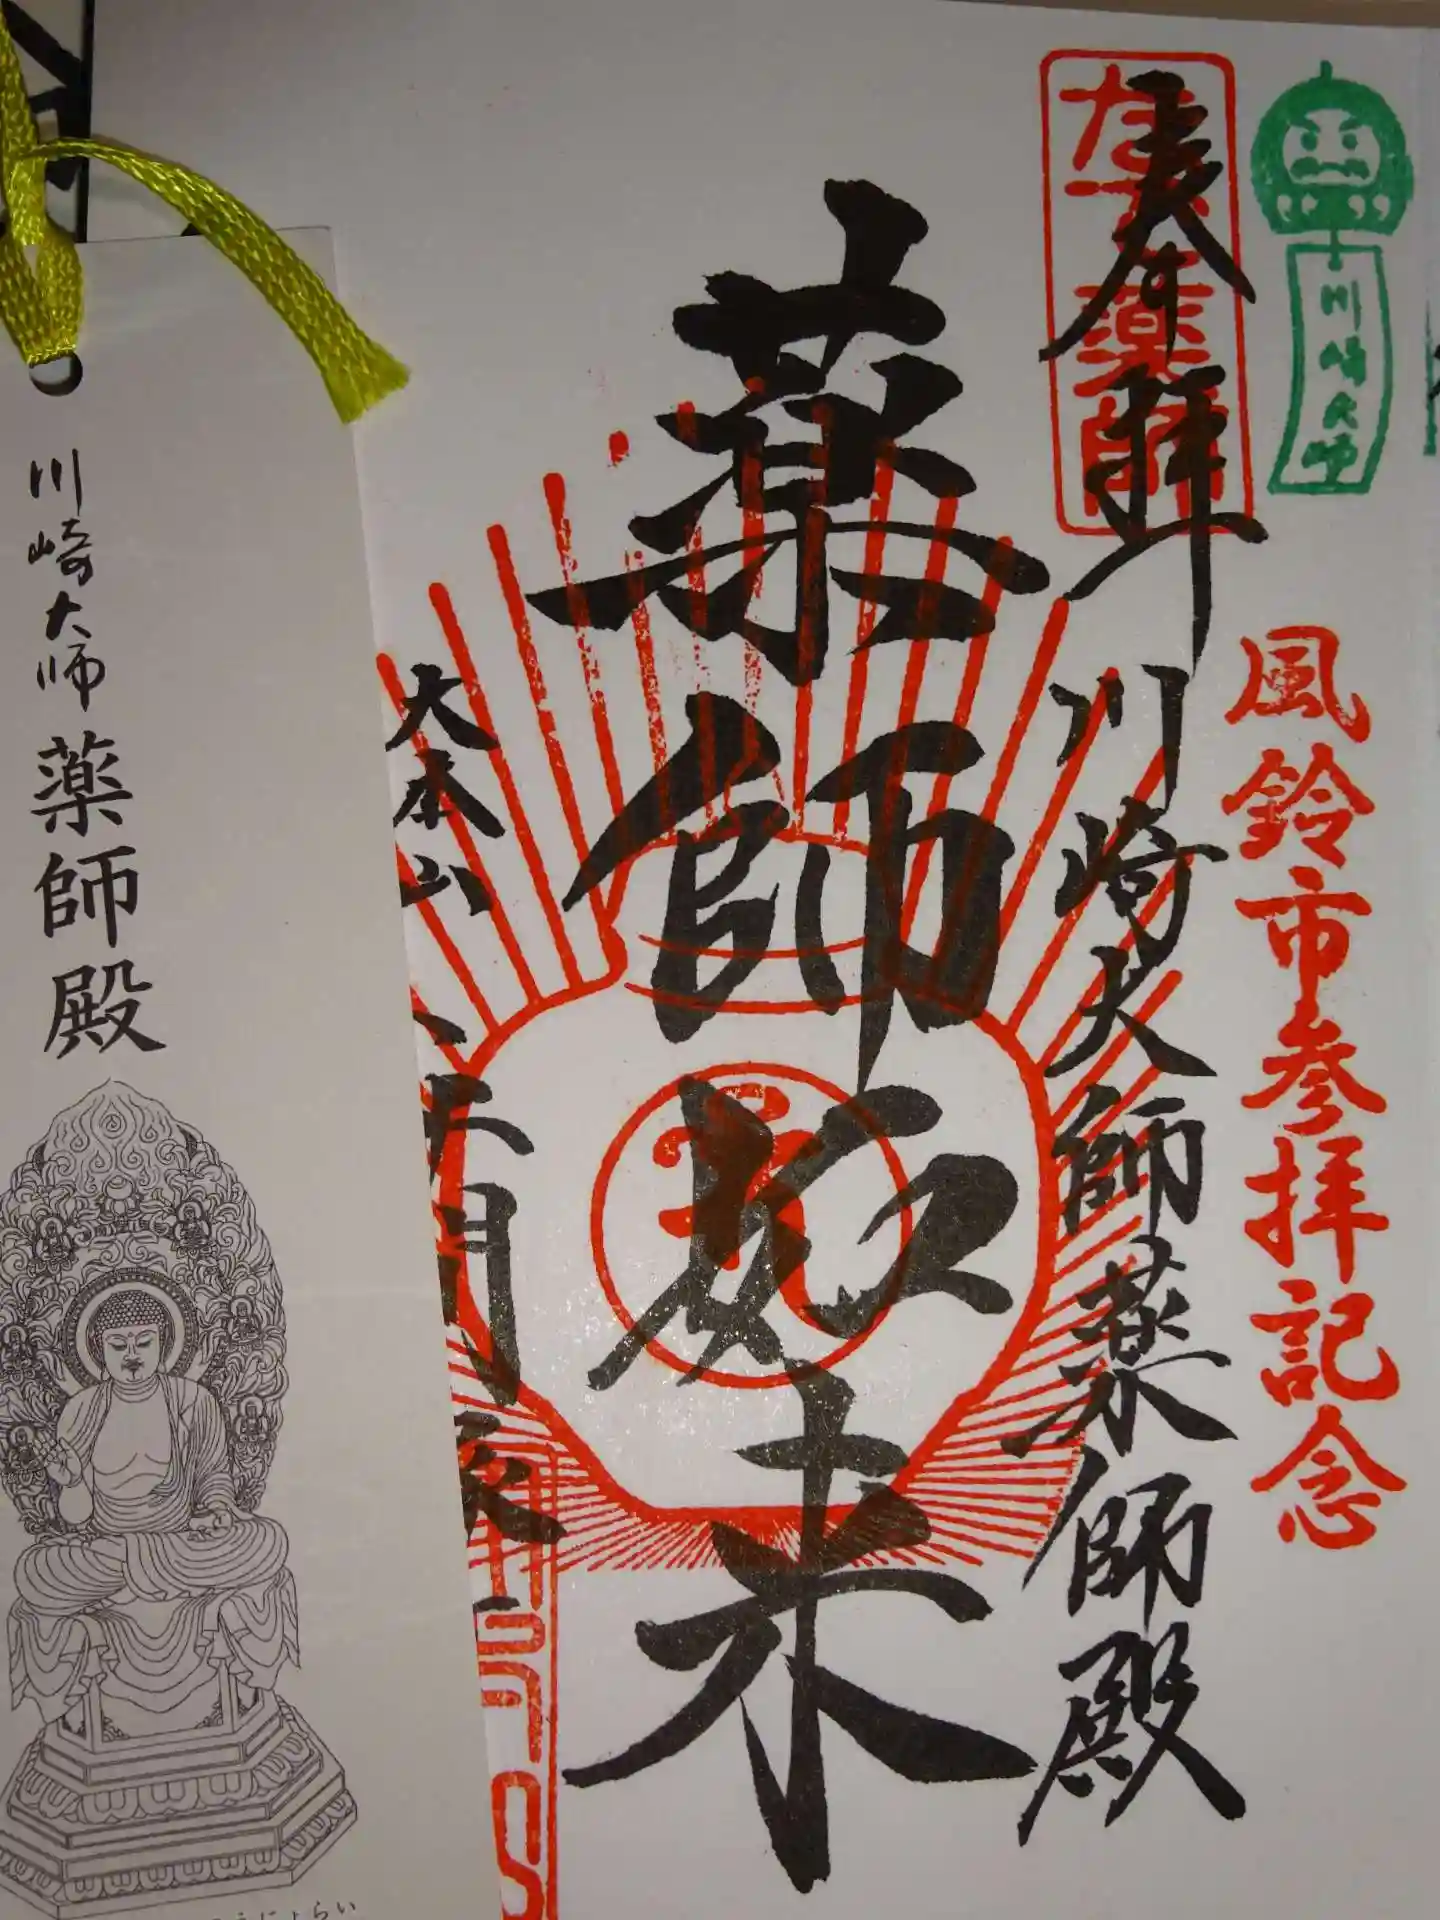 川崎大師
風鈴市参拝記念
なで薬師
奉拝
川崎大師薬師殿
薬師如来
大本山
川崎大師
薬師殿